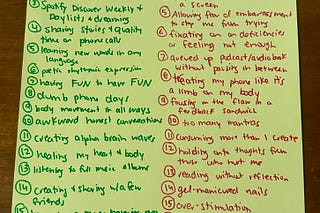 ③ Spotify Discover Weekly &
Daylists & dreaming
④ sharing stories & quality
time on phone calls
⑤ learning new words in any
language
⑥ poetic rhythmic expression
⑦ having FUN to have FUN
⑧ dumb phone days
⑨ body movement in all ways
⑩ awkward honest conversations
⑪ creating alpha brain waves
⑫ healing my heart & body
⑬ listening to full music albums
⑭ creating & sharing w/ a few
friends
⑮
a screen
⑤ Allowing fear of embarrassment
to stop me from trying
⑥ fixating on deficiencies
or feeling not enough
⑦ queued up podcast/audiobook
without pausing in between
⑧ treating my phone like it's
a limb on my body
⑨ focusing on the flaw in a
feedback sandwich
⑩ too many mantras
⑪ consuming more than I create
⑫ holding onto thoughts from
those who hurt me
⑬ reading without reflection
⑭ gel-manicured nails
⑮ over-stimulation